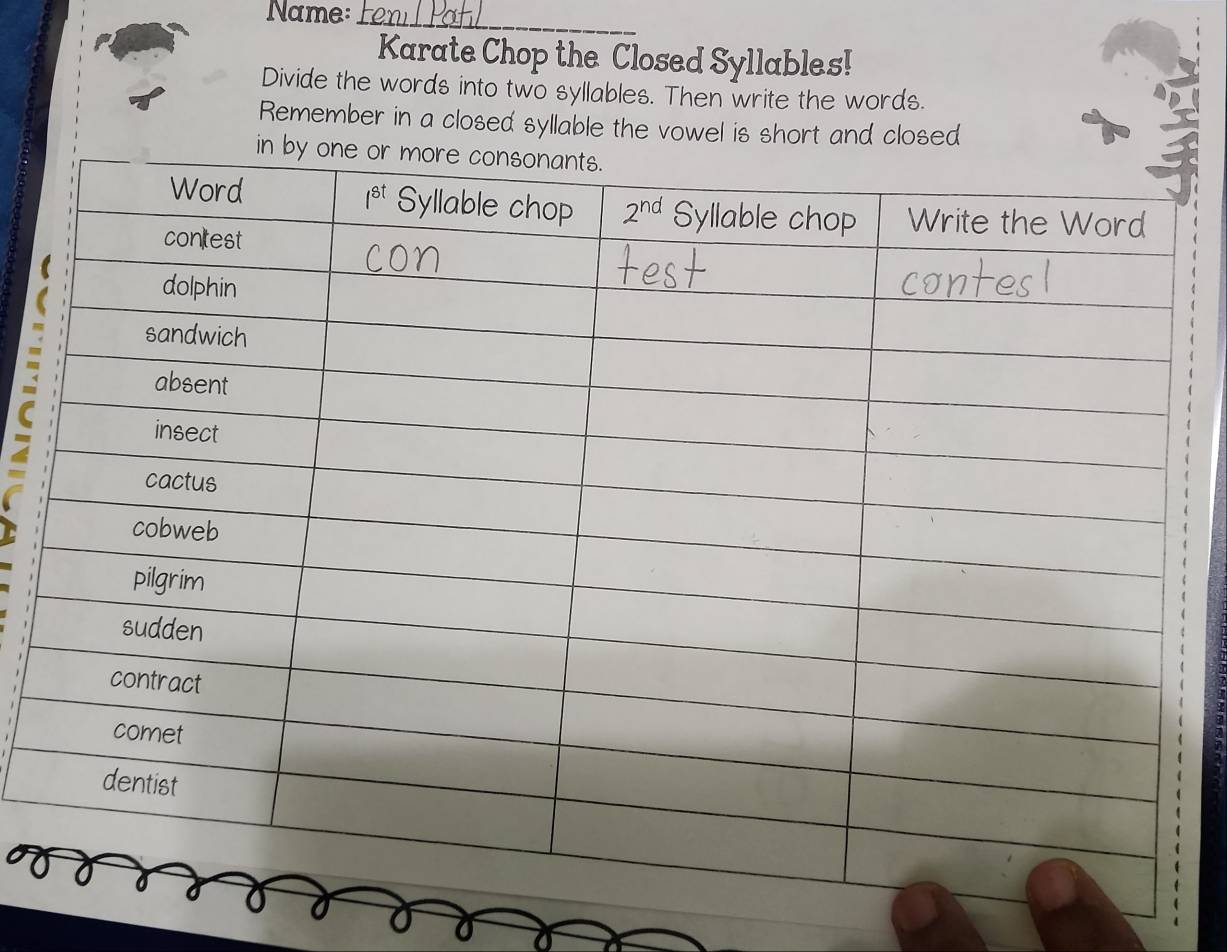 Name:
Karate Chop the Closed Syllables!
Divide the words into two syllables. Then write the words.
Remember in a closed syllable the vowel is short and closed
in by one or more consonants.
Word 1st Syllable chop 2nd Syllable chop Write the Word
contest con test contest
dolphin
sandwich
absent
insect
cactus
cobweb
pilgrim
sudden
contract
comet
dentist